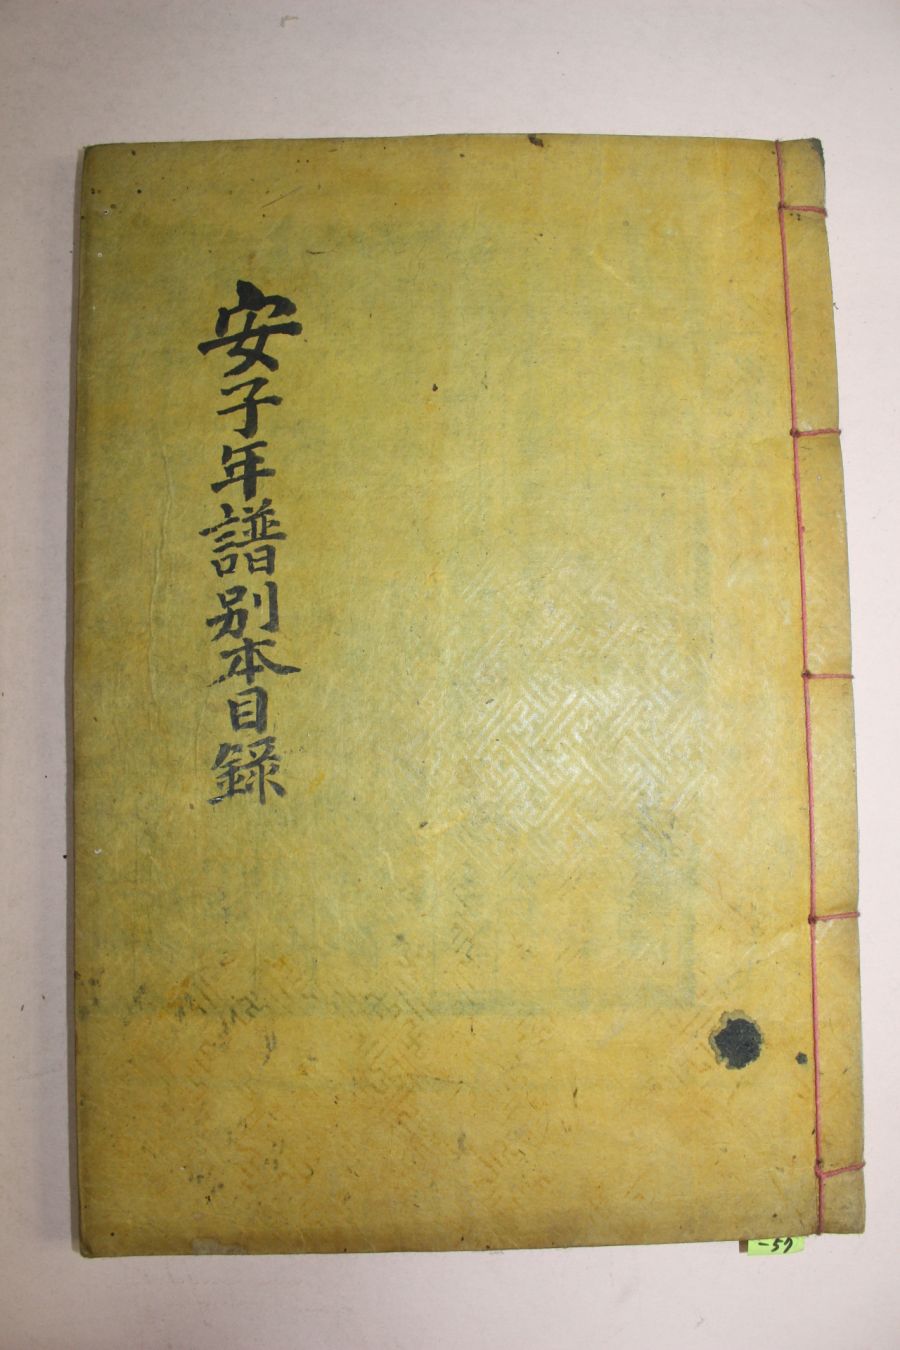 安子年譜別本目錄
-57